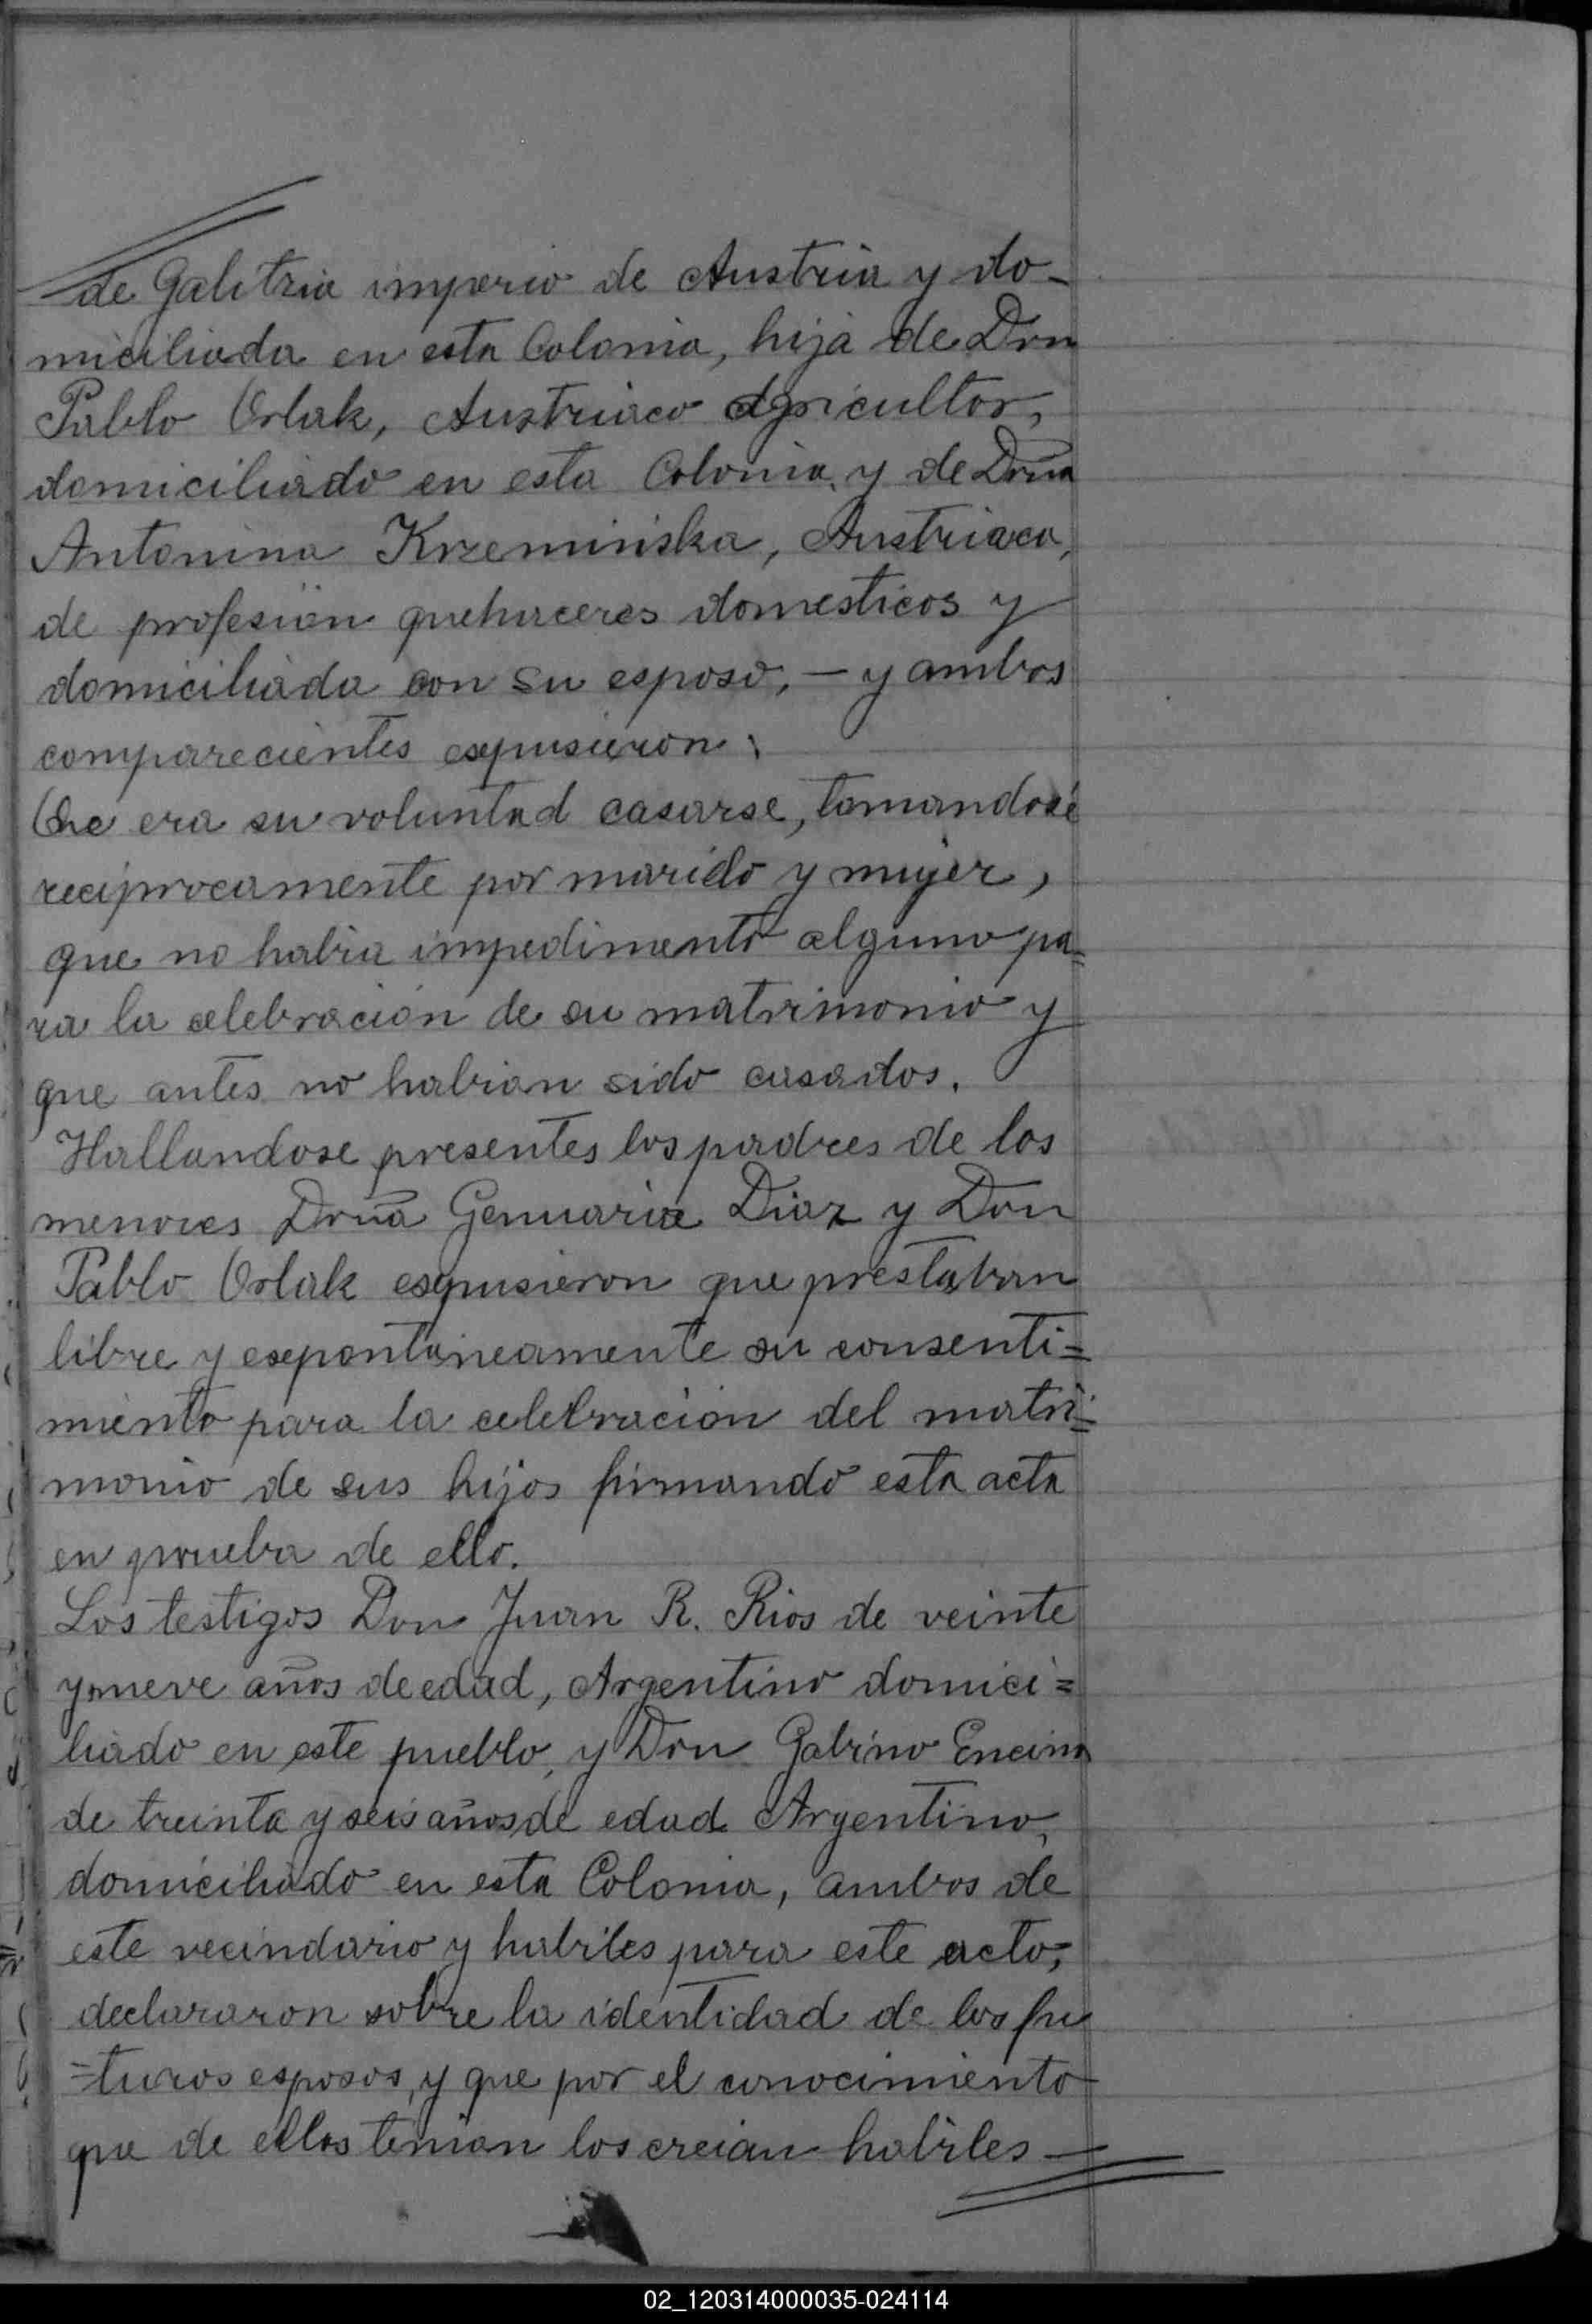 de Galitzia imperio de Austria y do-
miciliada en esta Colonia, hija de Don
Pablo Orlak, Austriaco Agricultor,
domiciliado en esta Colonia, y de Doña
Antonina Krzemińska, Austriaca,
de profesion quehaceres domesticos y
domiciliada con su esposo, - y ambos
comparecientes espusieron:
Que era su voluntad casarse, tomandosé
reciprocamente por marido y mujer,
que no habia impedimento alguno pa=
ra la celebracion de su matrimonio y
que antes no habian sido casados.
Hallandose presentes los padres de los
menores Doña Genuaria Diaz y Don
Pablo Orlak espusieron que prestaban
libre y esepontaneamente su consenti=
miento para la celebracion del matri=
monio de sus hijos firmando esta acta
en prueba de ello.
Los testigos Don Juan R. Rios de veinte
y nueve años de edad, Argentino domici=
liado en este pueblo, y Don Gabino Encina
de treinta y seis años de edad Argentino,
domiciliado en esta Colonia, ambos de
este vecindario y habiles para este acto,
declararon sobre la identidad de los fu
=turos esposos, y que por el conocimiento
que de ellos tenian los creian habiles -
02_120314000035-024114